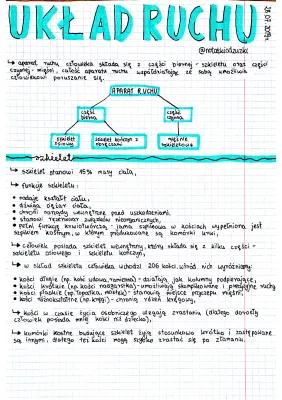 UKŁAD RUCHU
28.07.2019r.
@notatkiodzuzki
→ aparat ruchu człowieka składa się z części biernej - szkieletu oraz części
czynnej - mięśni, całość aparatu ruchu współdziałając ze sobą umożliwia
człowiekowi poruszanie się.
APARAT RUCHU
część bierna
część czynna
szkielet osiowy
szkielet kończyn z obręczami
mięśnie szkieletowe
szkielet
→ szkielet stanowi 15% masy ciała,
→ funkcje szkieletu:
• nadaje kształt ciału,
• dźwiga ciężar ciała,
• chroni narządy wewnętrzne przed uszkodzeniami,
• stanowi rezerwuar związków nieorganicznych,
• pełni funkcję krwiotwórczą - jama szpikowa w kościach wypełniona jest
szpikiem kostnym, w którym produkowane są komórki krwi,
→ człowiek posiada szkielet wewnętrzny, który składa się z kilku części -
szkieletu osiowego i szkieletu kończyn,
→ w skład szkieletu człowieka wchodzi 206 kości, wśród nich wyróżniamy:
• kości długie (np. kość udowa, ramienna) - działają jak kolumny podpierające,
• kości krótkie (np. kości nadgarstka) - umożliwiają skomplikowane i precyzyjne ruchy
• kości płaskie (np. łopatka, mostek) - stanowią miejsce przyczepu mięśni,
• kości różnokształtne (np. kręgi) - chronią rdzeń kręgowy,
→ kości w czasie życia osobniczego ulegają zrastaniu (dlatego dorosły
człowiek posiada mniej kości niż dziecko),
→ komórki kostne budujące szkielet żyją stosunkowo krótko i zastępowane
są innymi, dlatego też kości mogą szybko zrastać się po złamaniu.